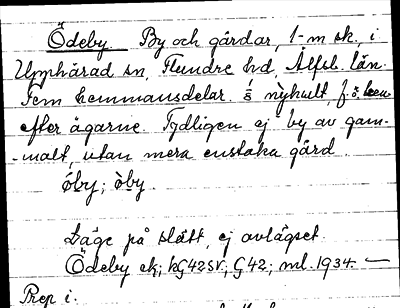 Ödeby By och gårdar, 1-m sk, i
Upphärad sn, Flundre hd, Älfsb. län.
Fem hemmansdelar. 1/8 nyhult, f. ö.
efter ägarne. Tydligen ej by av gam-
-malt, utan mera enstaka gård.
óby; òby.
Läge på slätt, ej avlägset.
Ödeby ek; hG42SV; G42; ml. 1934. —
Prep i.